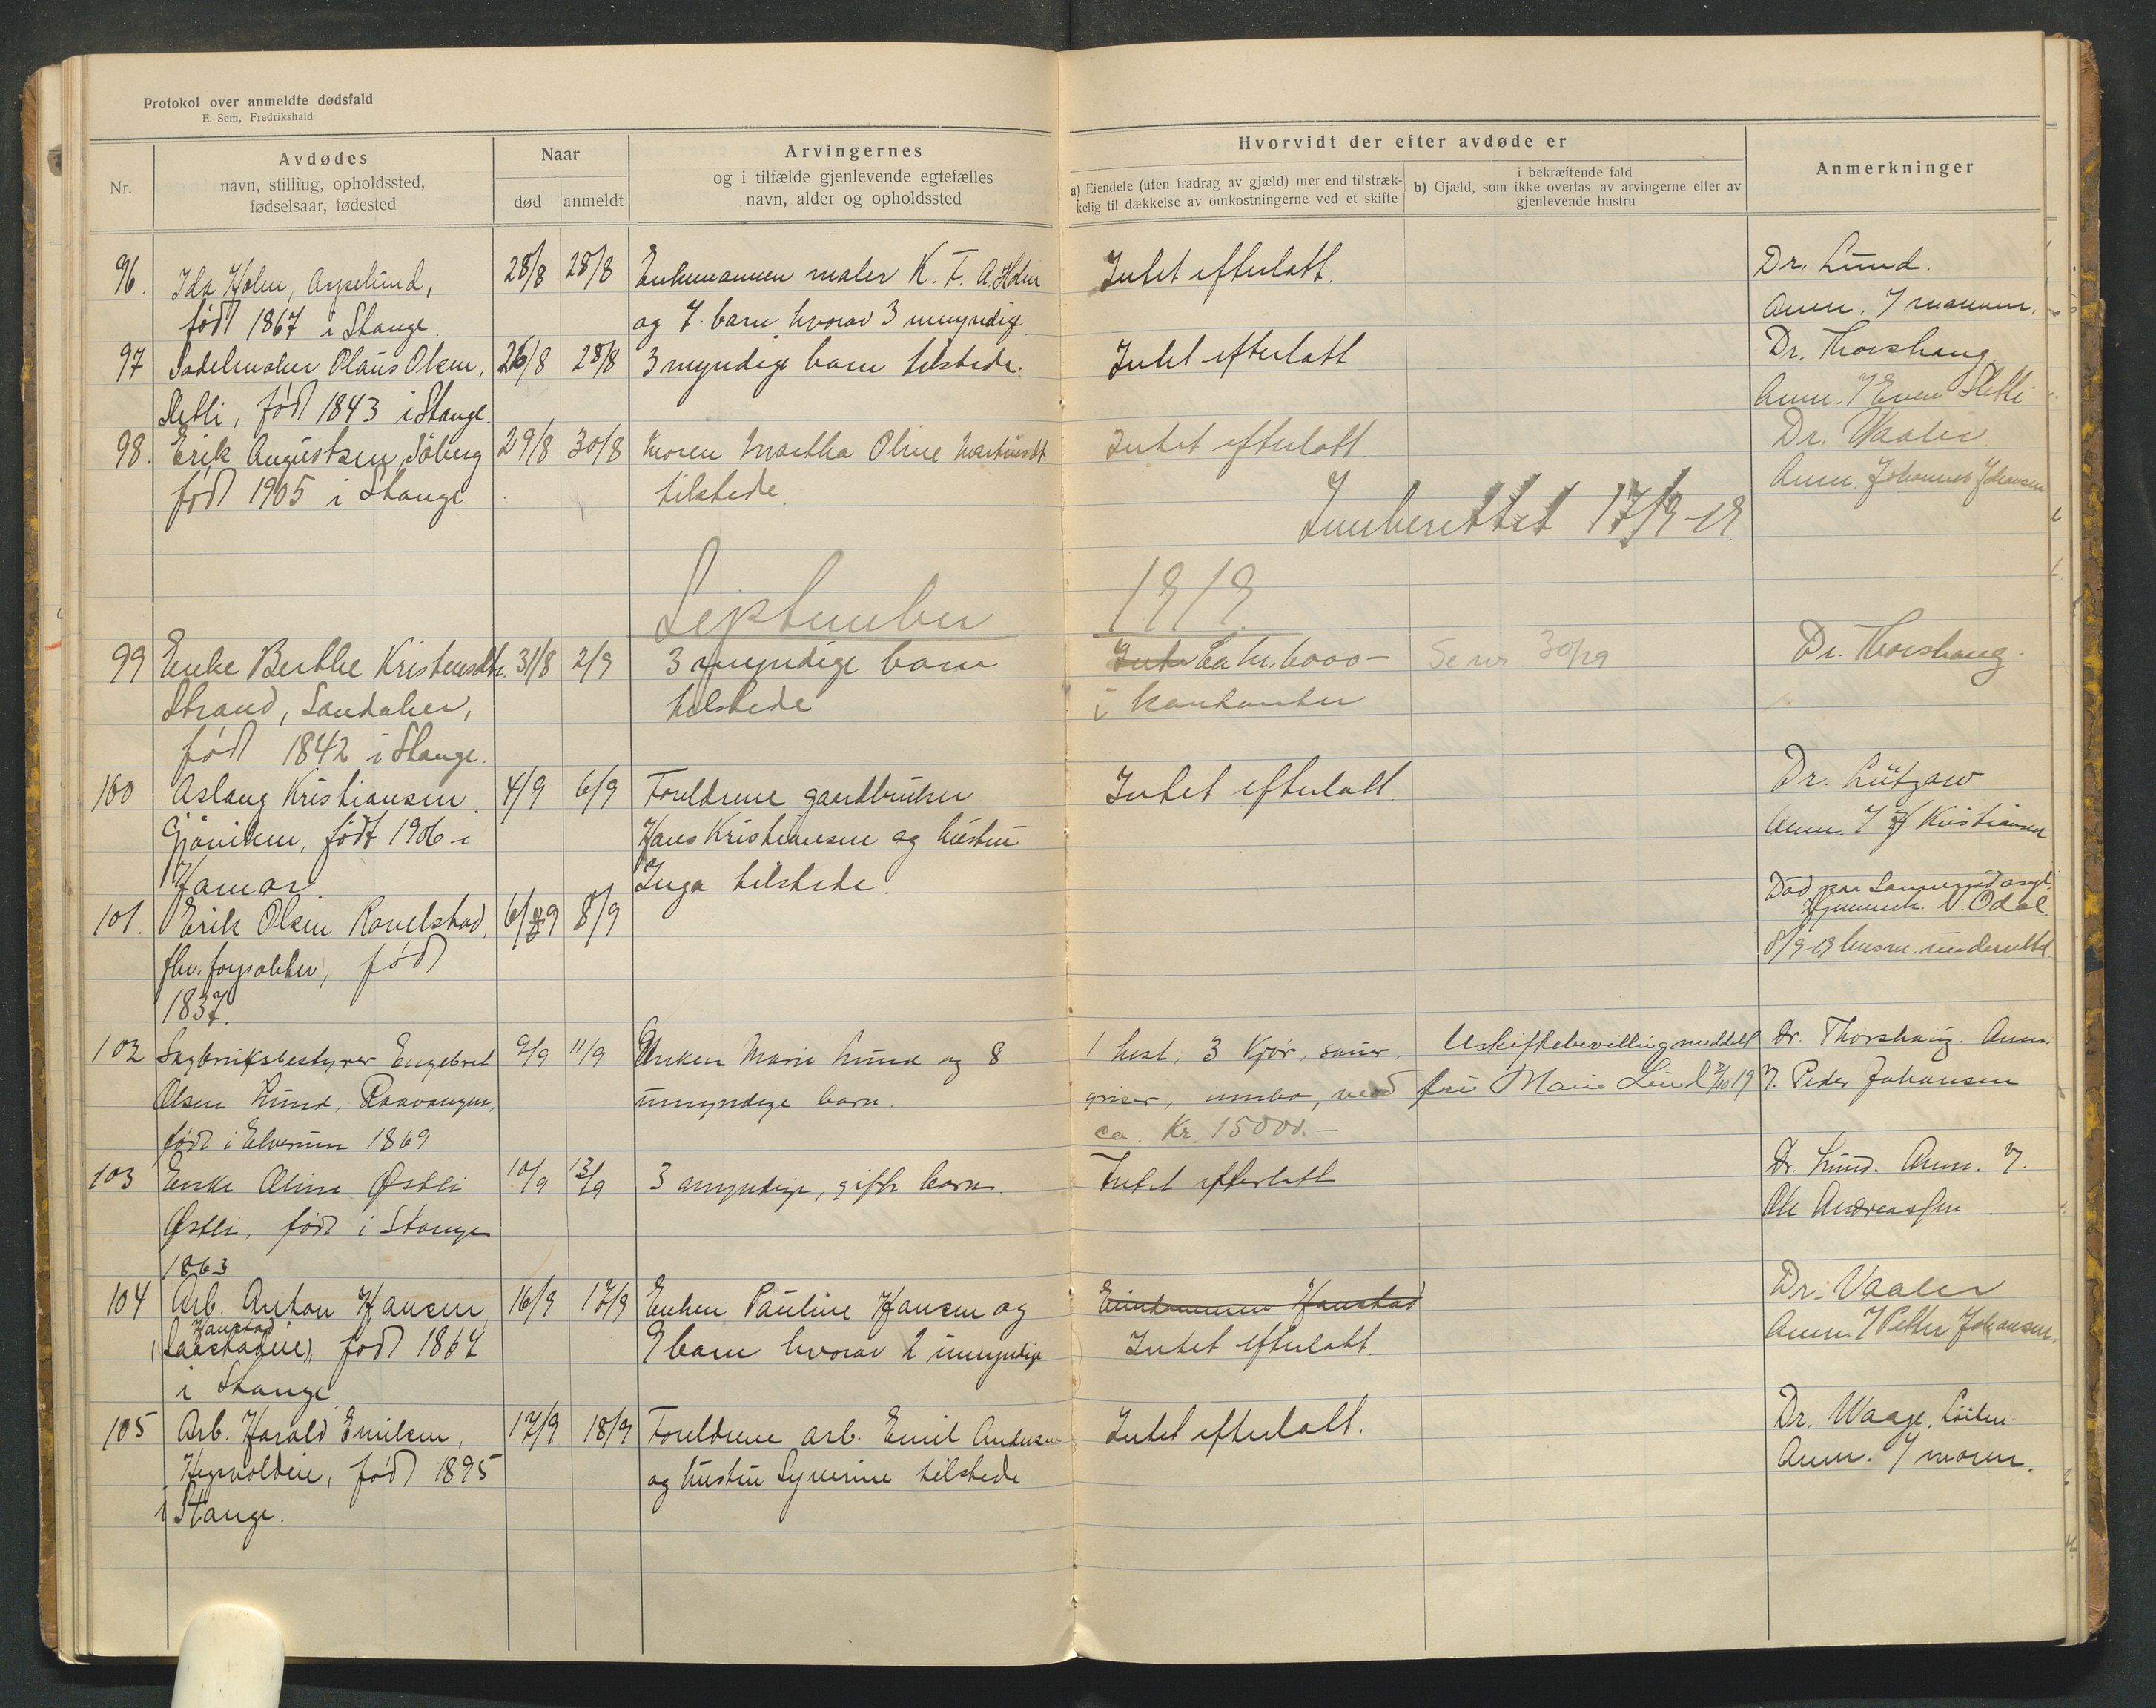 Protokol over anmeldte dødsfald
E. Sem, Fredrikshald
Nr.
Avdødes
navn, stilling, opholdssted,
fødselsaar, fødested
Naar
død
anmeldt
Arvingernes
og i tilfælde gjenlevende egtefælles
navn, alder og opholdssted
Hvorvidt der efter avdøde er
a) Eiendele (uten fradrag av gjæld) mer end tilstræk-
kelig til dækkelse av omkostningerne ved et skifte
i bekræftende fald
b) Gjæld, som ikke overtas av arvingerne eller av
gjenlevende hustru
Anmerkninger
96. Ida Holm, Aspelund, 28/8 28/8 Enkemannen maler K. F. A. Holm Intet efterlatt. Dr. Lund.
født 1867 i Stange. og 7 barn hvorav 3 umyndige Anm. / mannen.
97 Sadelmaker Olaus Olsen, 26/8 28/8 3 myndige barn tilstede. Intet efterlatt Dr. Thorshaug
Sletli, født 1843 i Stange. Anm. / Even Sletli
98. Erik Augustsen Söberg 29/8 30/8 Moren Martha Oline Martinsdt Intet efterlatt. Dr. Vaaler
født 1905 i Stange tilstede. Anm. Johannes Johansen
Innberettet 17/9-19.
September 1919.
99 Enke Berthe Kristensdtr. 31/8 2/9 3 myndige barn Inte Ca kr. 6000- Se nr 30/19 Dr. Thorshaug.
Strand, Sandaker, tilstede i kontanter
født 1842 i Stange.
100 Aslaug Kristiansen 4/9 6/9 Foreldrene gaardbruker Intet efterlatt. Dr. Lützow
Gjöviken, født 1906 i Hans Kristiansen og hustru Anm. / H. Kristiansen
Hamar. Inga tilstede.
101. Erik Olsen Ravelstad, 6/9 8/9 Död paa Sannerud asyl.
fhv. født N. Odal.
1837. 8/9-19 underrettet.
102 Sagbruksbestyrer Engebret 9/9 11/9 Enken Marie Lund og 8 1 hest, 3 kjør, sauer, Uskiftebevilling meddelt Dr. Thorshaug. Anm.
Olsen Lund, Raavangen, umyndige barn. griser, innbo, ved fru Marie Lund 2/10 19 v. Peder Johansen
født i Elverum 1869 ca. Kr. 15000.-
103 Enke Oline Østli 10/9 13/9 3 myndige, gifte barn. Intet efterlatt Dr. Lund. Anm. v.
Østli, født i Stange Ole Andreassen.
1863
104 Arb. Anton Hansen 16/9 17/9 Enken Pauline Hansen og Eiendommen Hanstad Dr. Vaaler
Hanstad
født 1864 9 barn hvorav 2 umyndige Intet efterlatt. Anm. / Petter Johansen.
i Stange
105 Arb. Harald Emilsen, 17/9 18/9 Foreldrene arb. Emil Andersen Intet efterlatt. Dr. Waage, Löiten.
født 1895 og hustru Syverine tilstede Anm. / moren.
i Stange.